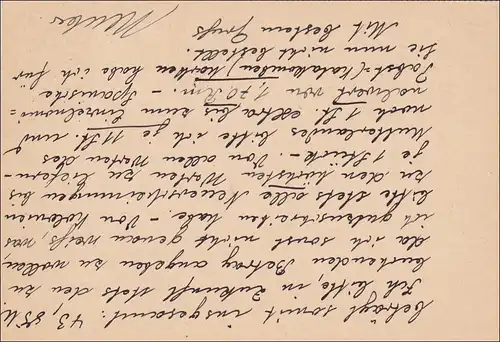 beträgt somit insgesamt: 43,85 M.
Ich bitte, in Zukunft stets den zu
buchenden Betrag angeben zu wollen,
da ich sonst nicht genau weiß, was
ich gutzuschreiben habe. - Von Kolonien
bitte stets alle Neuerscheinungen bis
zu den höchsten Werten zu liefern
je 1 Stück. - Von allen Werten des
Mutterlandes bitte ich je 11 St. und
noch 1 St. extra bis zum Einzelnomi=
nalwert von 1,70 Rm. - Spanische
(Katakomben) Marken habe ich für
Sie nun nicht bestellt.
Mit bestem Gruß